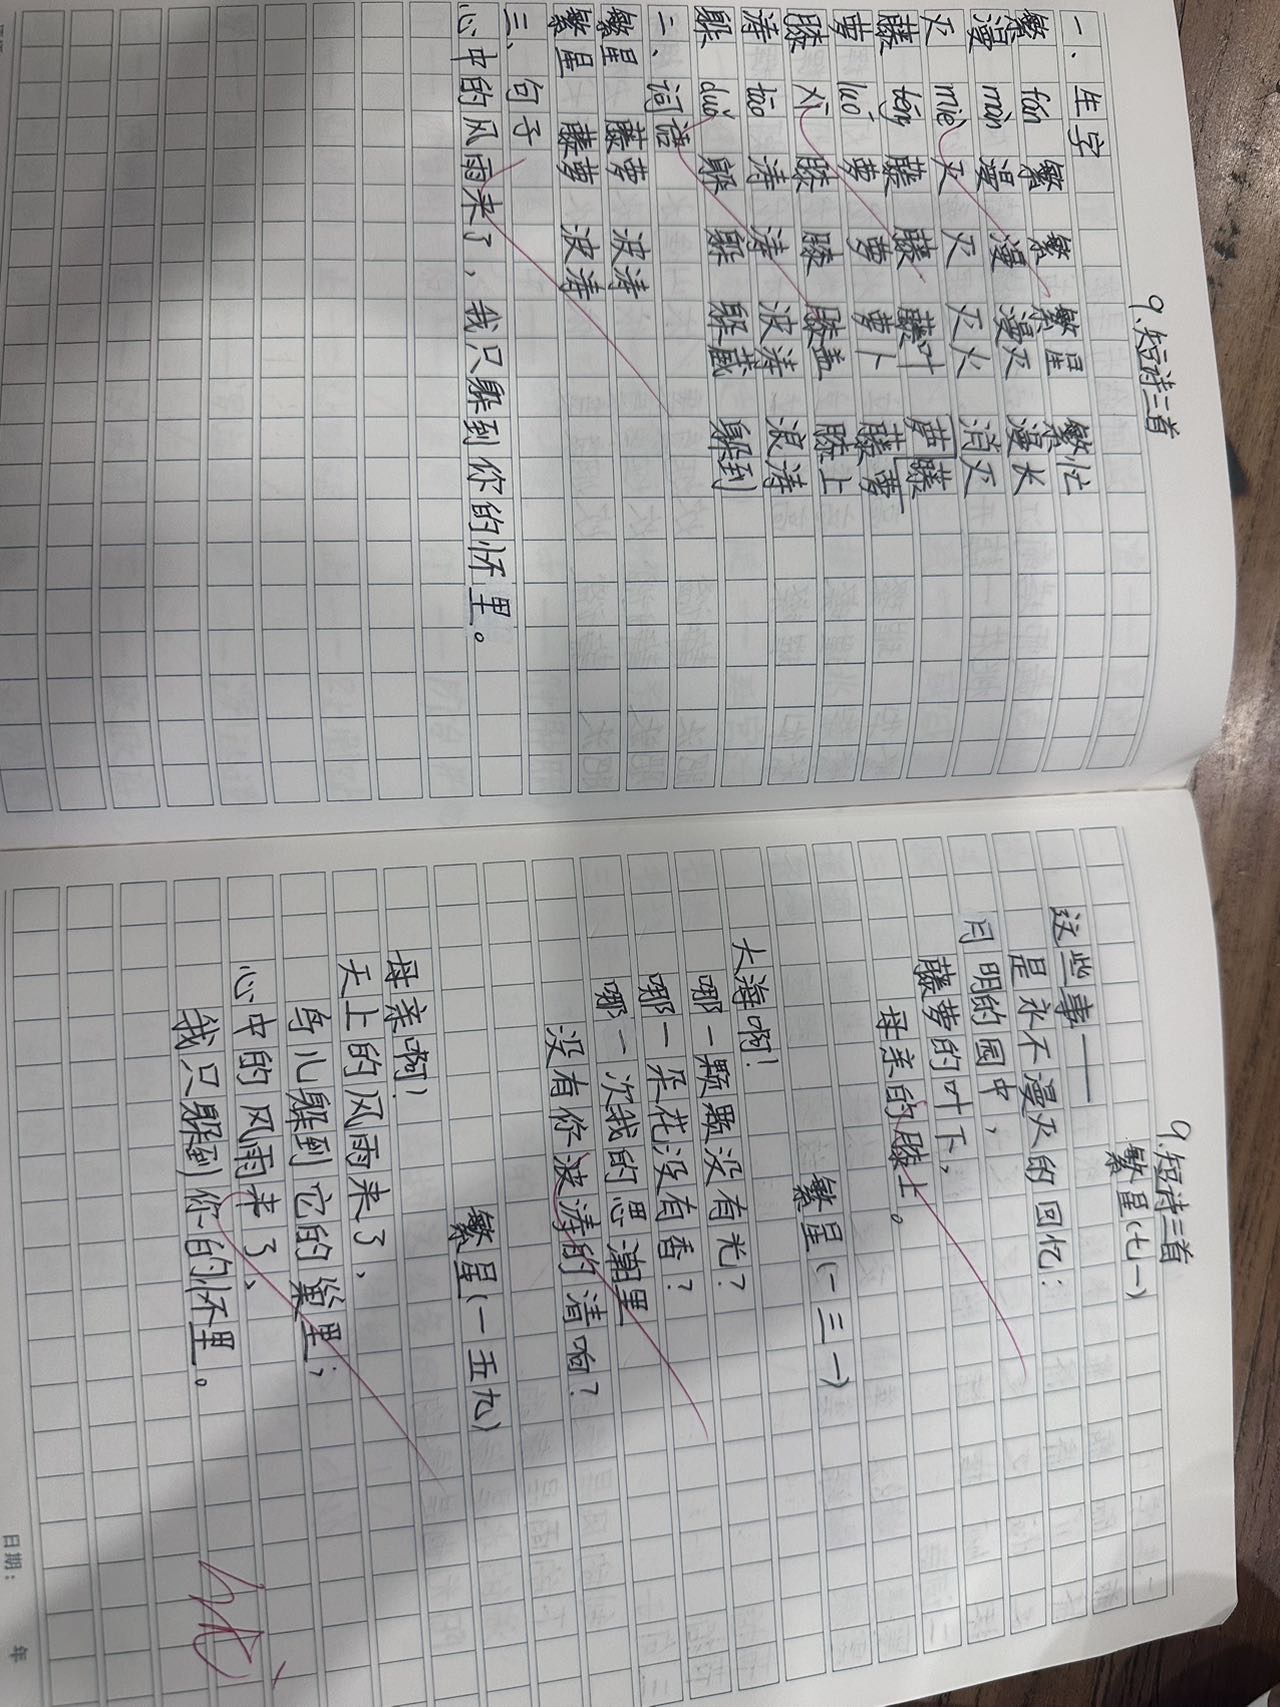 9.短诗三首
一、生字
繁 fán 繁 繁 繁星 繁忙
漫 màn 漫 漫 漫灭 漫长
灭 miè 灭 灭 灭火 消灭
藤 téng 藤 藤 藤叶 萝藤
萝 luó 萝 萝 萝卜 藤萝
膝 xī 膝 膝 膝盖 膝上
涛 tāo 涛 涛 波涛 浪涛
躲 duǒ 躲 躲 躲藏 躲到
二、词语
繁星 藤萝 波涛
繁星 藤萝 波涛
三、句子
心中的风雨来了,我只躲到你的怀里。
9.短诗三首
繁星(七一)
这些事——
是永不漫灭的回忆:
月明的园中,
藤萝的叶下,
母亲的膝上。
繁星(一三一)
大海啊!
哪一颗颗没有光?
哪一朵花没有香?
哪一次我的思潮里
没有你波涛的清响?
繁星(一五九)
母亲啊!
天上的风雨来了,
鸟儿躲到它的巢里;
心中的风雨来了,
我只躲到你的怀里。
日期: 年